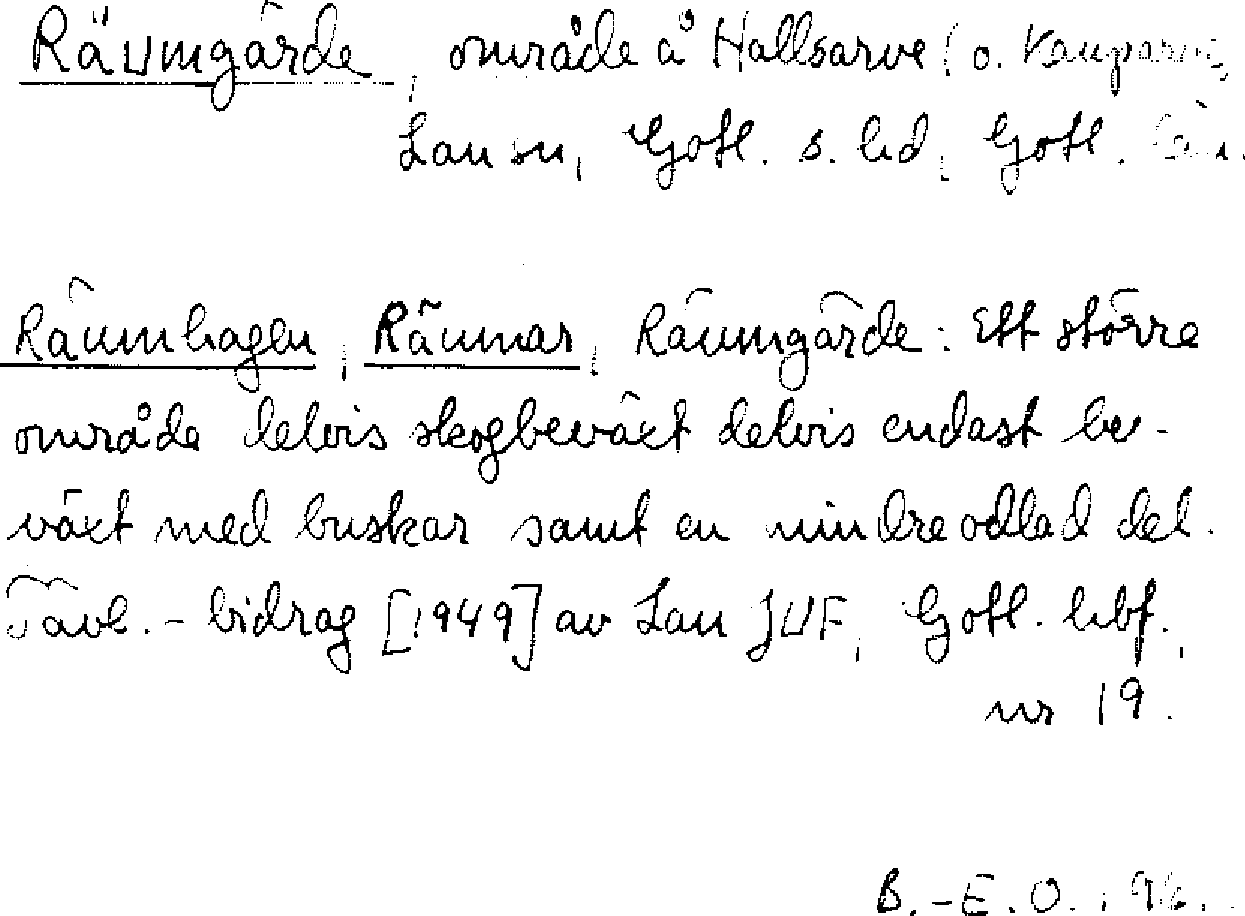 Räumgärde, område å Hallsarve (o. Kauparve,
Lau sn, Gotl. s. hd, Gotl. län.
Räumhagen, Räumar, Räumgärde: Ett större
område delvis skogbeväxt delvis endast be-
växt med buskar samt en mindre odlad del.
Tävl. - bidrag [1949] av Lau JUF, Gotl. hbf.,
nr 19.
B.-E. O.